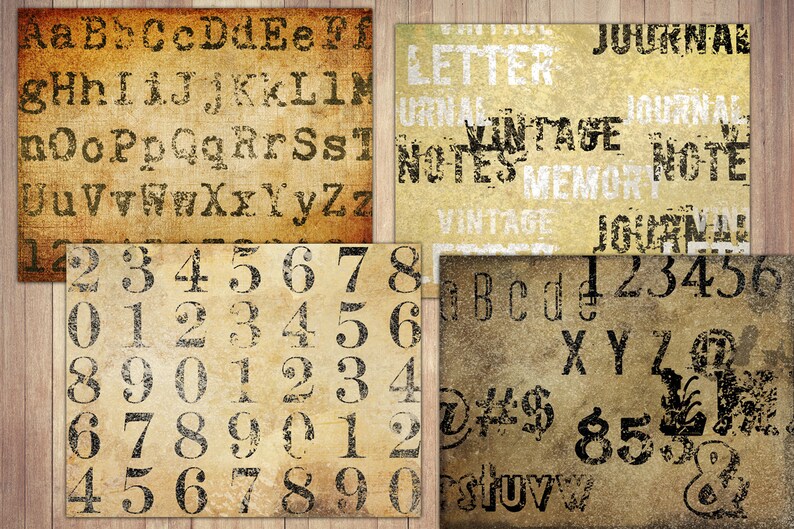 AaBbCcDdEeFf
gHhIiJjKkLlM
nOoPpQqRrSsT
UuVvWwXxYyZz
VINTAGE
JOURNAL
LETTER
URNAL
JOURNAL
VINTAGE
NOTES
NOTE
MEMORY
VINTAGE
JOURNAL
VIN
2 3 4 5 6 7 8
0 1 2 3 4 5 6
8 9 0 1 2 3 4
6 7 8 9 0 1 2
4 5 6 7 8 9 0
aBcde
123456
XYZ@
@#$
853
&
stuvw